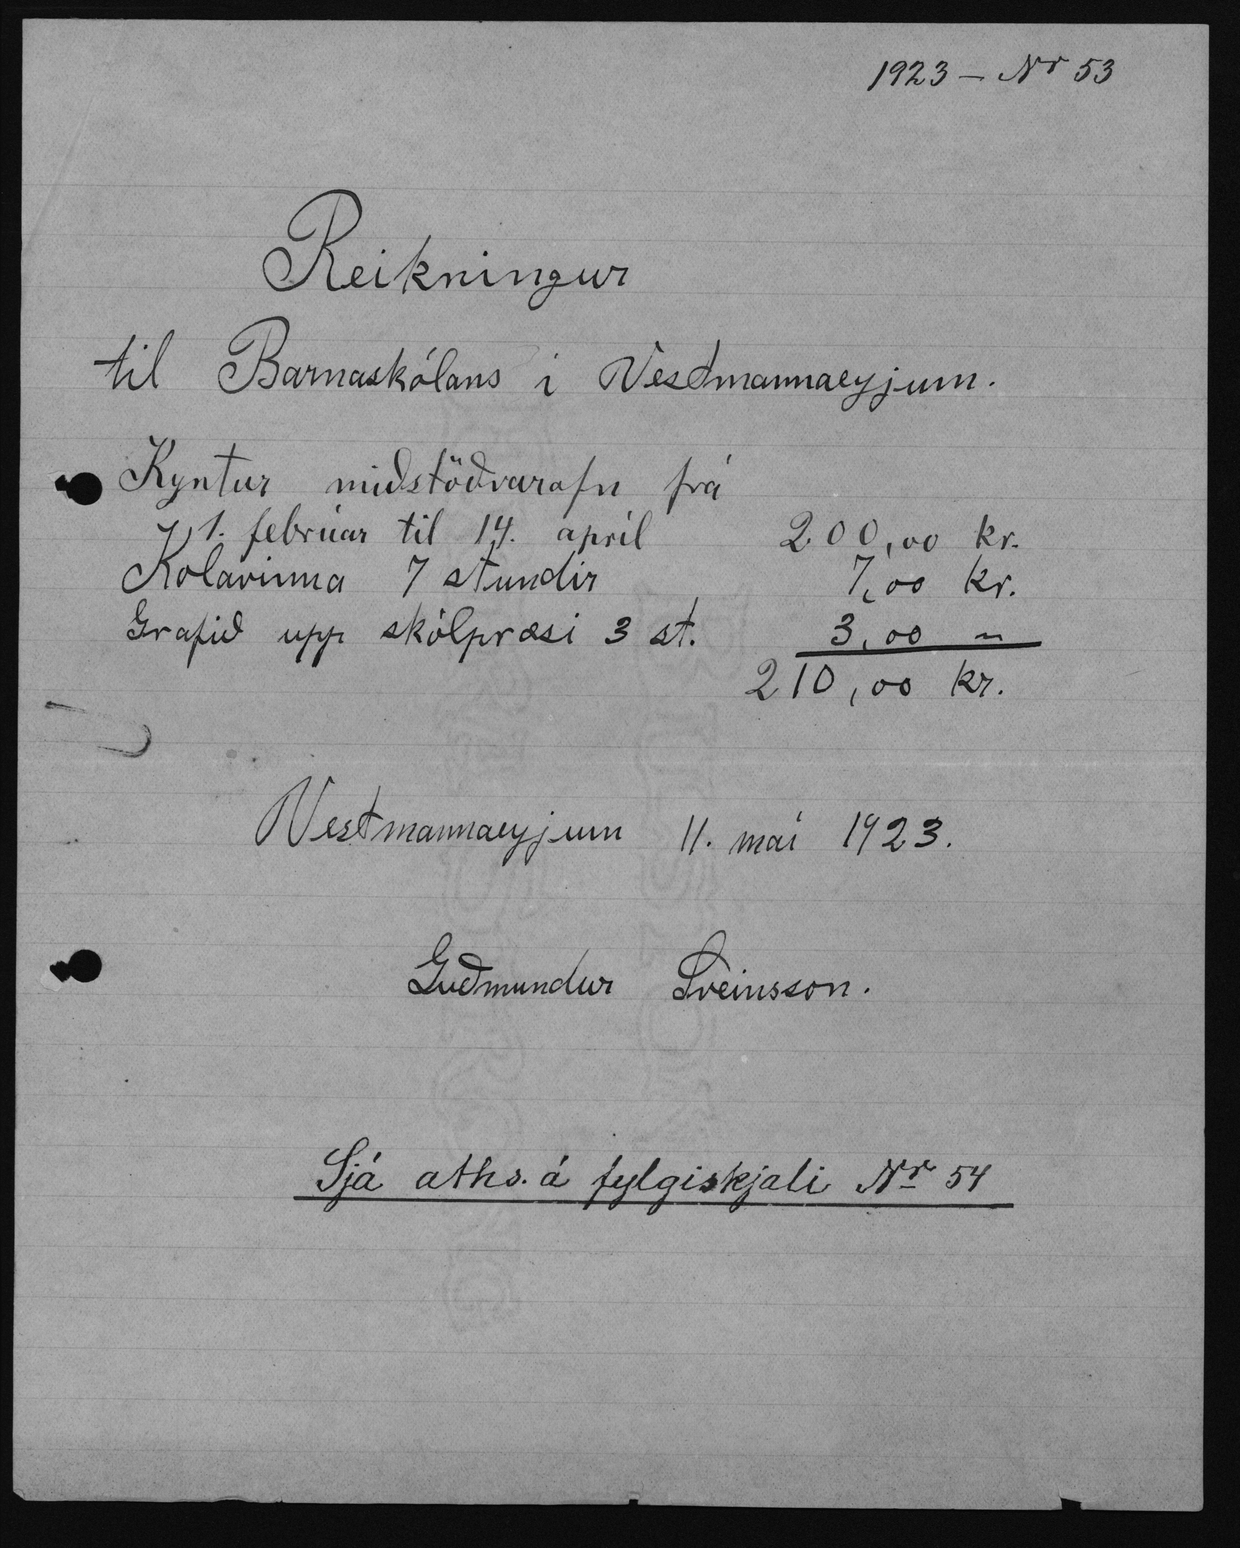 1923 – Nr 53
Reikningur
til Barnaskólans i Vestmannaeyjum.
Kyntur miðstöðvarofn frá
1. febrúar til 14. april 200,00 kr.
Kolavinna 7 stundir 7,00 kr.
Grafið upp skólpræsi 3 st. 3,00 "
210,00 kr.
Vestmannaeyjum 11. mai 1923.
Guðmundur Sveinsson.
Sjá aths. á fylgiskjali Nr 54